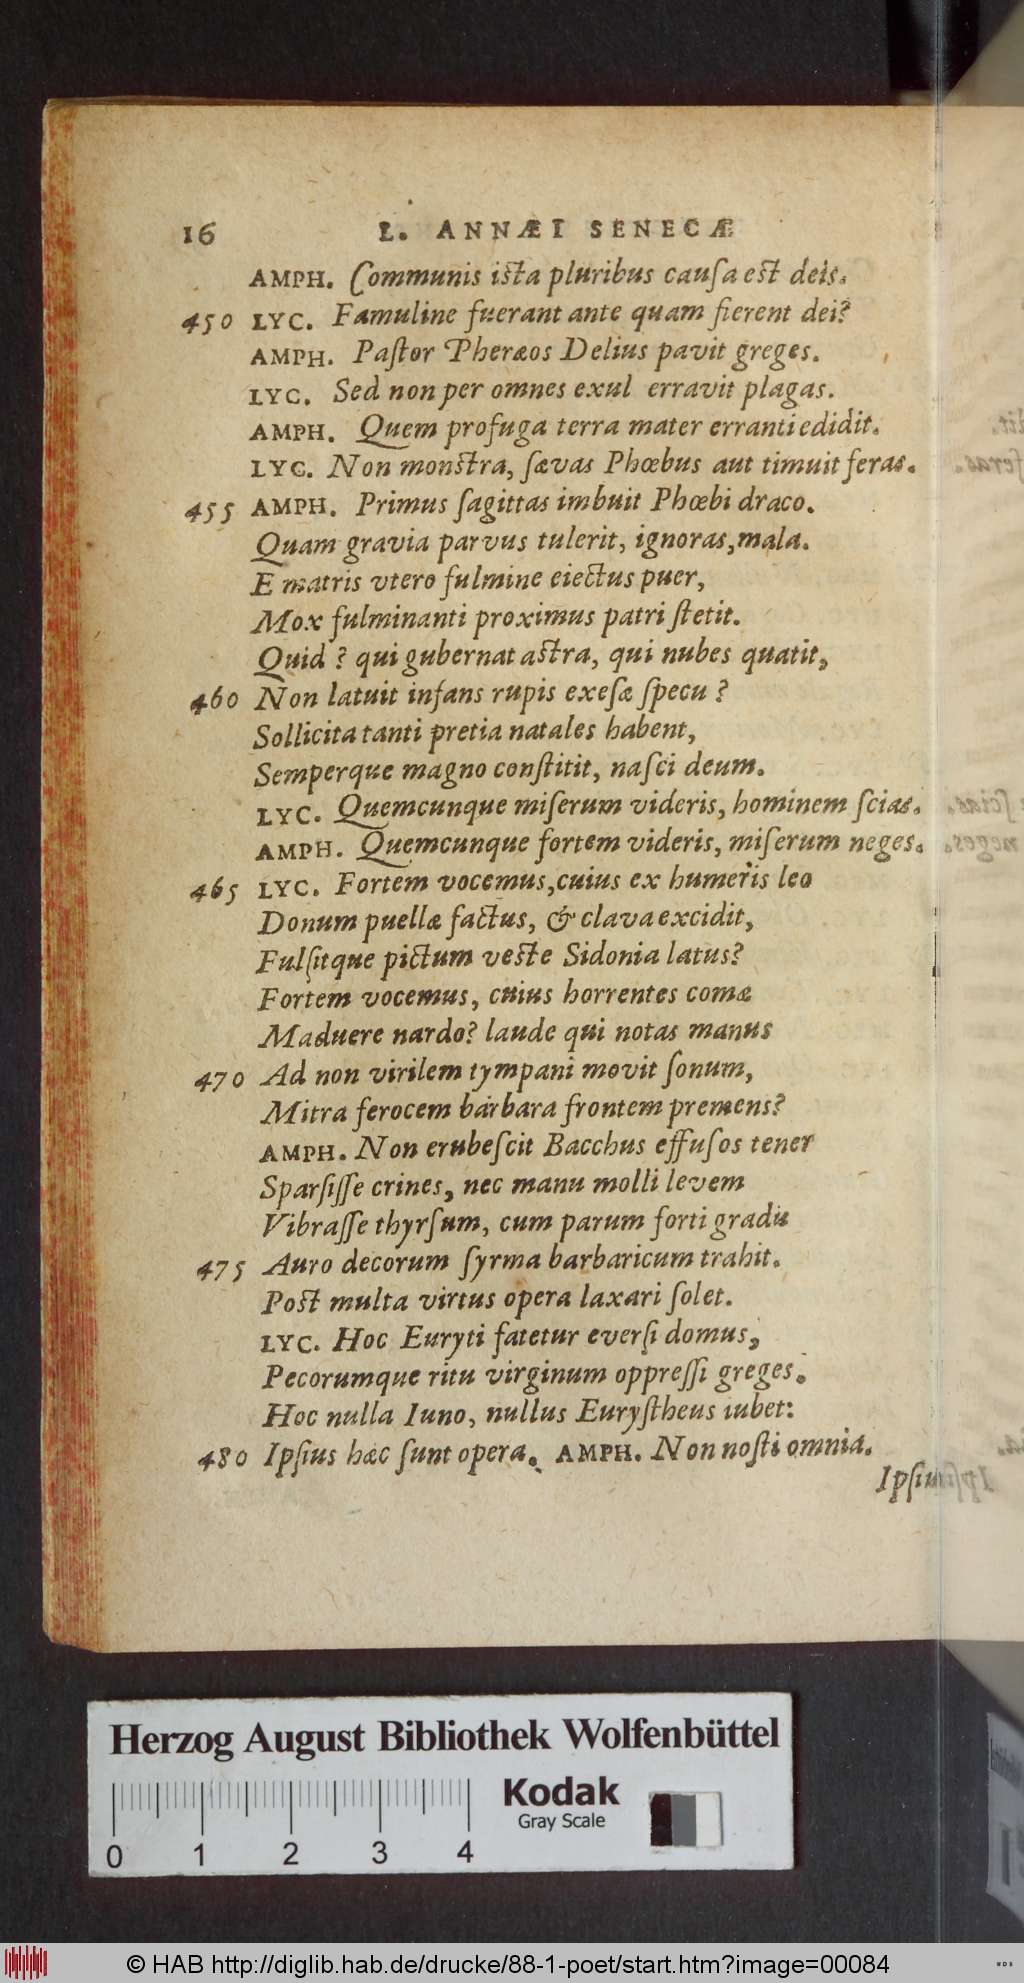 16 L. ANNÆI SENECÆ
AMPH. Communis ista pluribus cauſa est deis.
450 LYC. Famuline fuerant ante quam fierent dei?
AMPH. Paſtor Pheræos Delius pavit greges.
LYC. Sed non per omnes exul erravit plagas.
AMPH. Quem profuga terra mater erranti edidit.
LYC. Non monstra, ſævas Phœbus aut timuit feras.
455 AMPH. Primus ſagittas imbuit Phœbi draco.
Quam gravia parvus tulerit, ignoras, mala.
E matris vtero fulmine eiectus puer,
Mox fulminanti proximus patri ſtetit.
Quid? qui gubernat astra, qui nubes quatit,
460 Non latuit infans rupis exeſæ ſpecu?
Sollicita tanti pretia natales habent,
Semperque magno conſtitit, naſci deum.
LYC. Quemcunque miſerum videris, hominem ſcias.
AMPH. Quemcunque fortem videris, miſerum neges.
465 LYC. Fortem vocemus, cuius ex humeris leo
Donum puellæ factus, & clava excidit,
Fulſitque pictum veste Sidonia latus?
Fortem vocemus, cuius horrentes comæ
Maduere nardo? laude qui notas manus
470 Ad non virilem tympani movit ſonum,
Mitra ferocem barbara frontem premens?
AMPH. Non erubeſcit Bacchus effuſos tener
Sparſiſſe crines, nec manu molli levem
Vibraſſe thyrſum, cum parum forti gradu
475 Auro decorum ſyrma barbaricum trahit.
Post multa virtus opera laxari ſolet.
LYC. Hoc Euryti fatetur everſi domus,
Pecorumque ritu virginum oppreſſi greges.
Hoc nulla Iuno, nullus Euryſtheus iubet:
480 Ipſius hæc ſunt opera. AMPH. Non noſti omnia.
Ipſius
Herzog August Bibliothek Wolfenbüttel
Kodak
Gray Scale
0 1 2 3 4
© HAB http://diglib.hab.de/drucke/88-1-poet/start.htm?image=00084